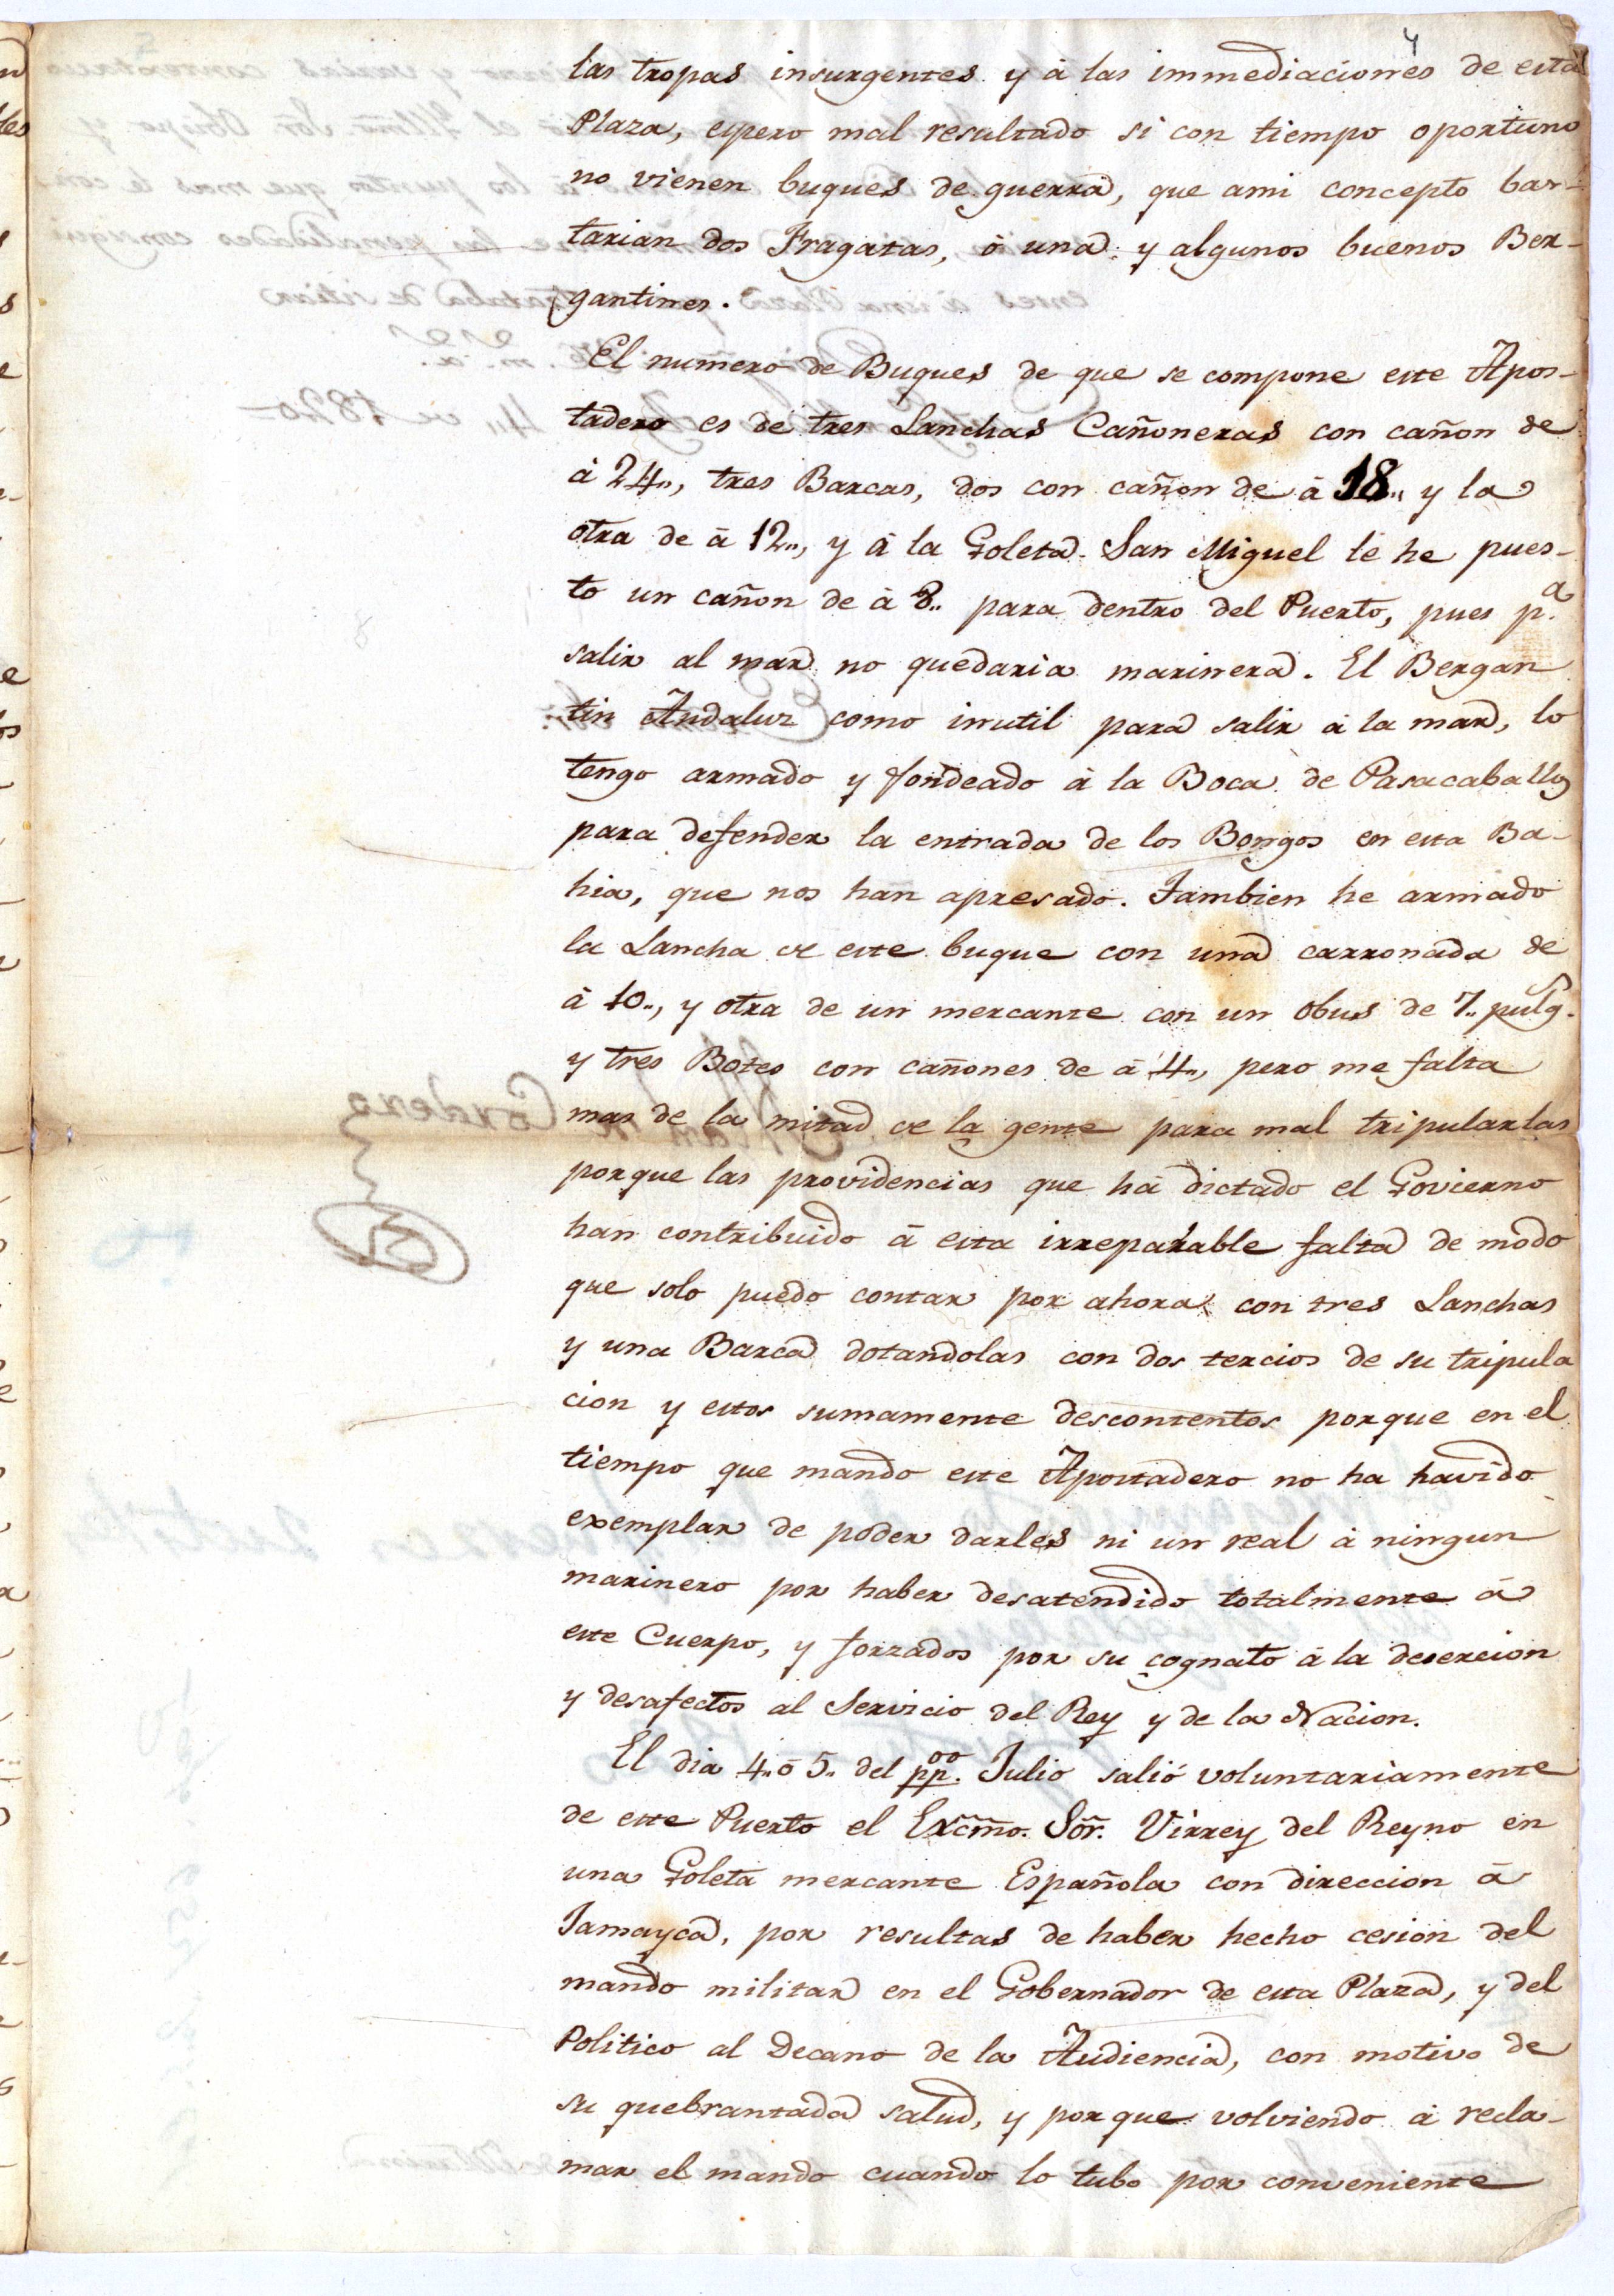 4
las tropas insurgentes y à las immediaciones de esta
Plaza, espero mal resultado si con tiempo oportuno
no vienen buques de guerra, que ami concepto bas-
tarian dos Fragatas, ó una y algunos buenos Ber-
gantines.
El numero de Buques de que se compone este Apos-
tadero es de tres Lanchas Cañoneras con cañon de
à 24,, tres Barcas, dos con cañon de à 18,, y la
otra de à 12,, y à la Goleta San Miguel le he pues-
to un cañon de à 8,, para dentro del Puerto, pues p.ª
salir al mar no quedaria marinera. El Bergan
tin Andaluz como inutil para salir à la mar, lo
tengo armado y fondeado à la Boca de Pasacaballos
para defender la entrada de los Bongos en esta Ba-
hia, que nos han apresado. Tambien he armado
la Lancha de este buque con una carronada de
à 10,, y otra de un mercante con un obus de 7,, pulg.ˢ
y tres Botes con cañones de à 4,, pero me falta
mas de la mitad de la gente para mal tripularlas
porque las providencias que há dictado el Govierno
han contribuido à esta irreparable falta de modo
que solo puedo contar por ahora con tres Lanchas
y una Barca dotandolas con dos tercios de su tripula
cion y estos sumamente descontentos porque en el
tiempo que mando este Apostadero no ha havido
exemplar de poder darles ni un real à ningun
marinero por haber desatendido totalmente à
este Cuerpo, y forzados por su cognato à la desercion
y desafectos al Servicio del Rey y de la Nacion.
El dia 4,, ó 5,, del pp.ᵒᵒ Julio salió voluntariamente
de este Puerto el Excmo. Sõr. Virrey del Reyno en
una Goleta mercante Española con direccion à
Jamayca, por resultas de haber hecho cesion del
mando militar en el Gobernador de esta Plaza, y del
Politico al Decano de la Audiencia, con motivo de
su quebrantada salud, y porque volviendo à recla-
mar el mando cuando lo tubo por conveniente